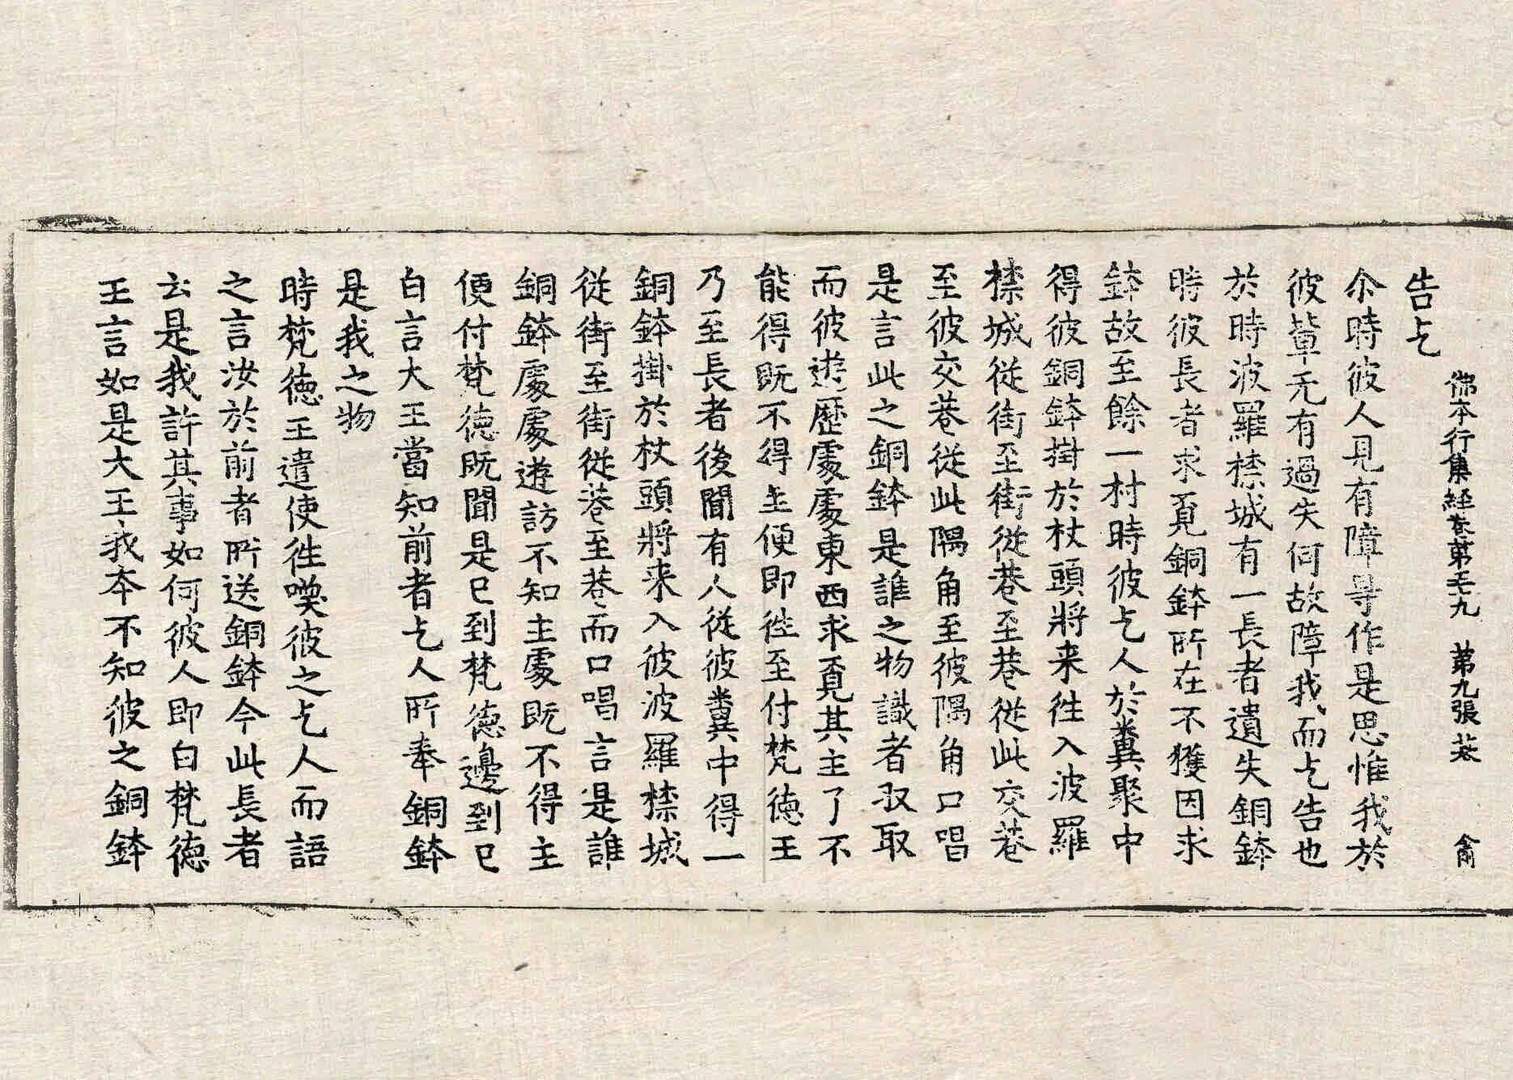 佛本行集経卷第五十九　第九張　禽
告乞
尒時彼人見有障㝵作是思惟我於
彼軰无有過失何故障我而乞告也
於時波羅㮈城有一長者遺失銅鉢
時彼長者求覓銅鉢所在不獲因求
鉢故至餘一村時彼乞人於糞聚中
得彼銅鉢掛於杖頭將来往入波羅
㮈城從街至街從巷至巷從此交巷
至彼交巷從此隅角至彼隅角口唱
是言此之銅鉢是誰之物識者収取
而彼遊歷處處東西求覓其主了不
能得既不得主便即往至付梵徳王
乃至長者後聞有人從彼糞中得一
銅鉢掛於杖頭將来入彼波羅㮈城
從街至街從巷至巷而口唱言是誰
銅鉢處處遊訪不知主處既不得主
便付梵徳既聞是已到梵徳邊到已
白言大王當知前者乞人所奉銅鉢
是我之物
時梵徳王遣使往喚彼之乞人而語
之言汝於前者所送銅鉢今此長者
云是我許其事如何彼人即白梵徳
王言如是大王我本不知彼之銅鉢